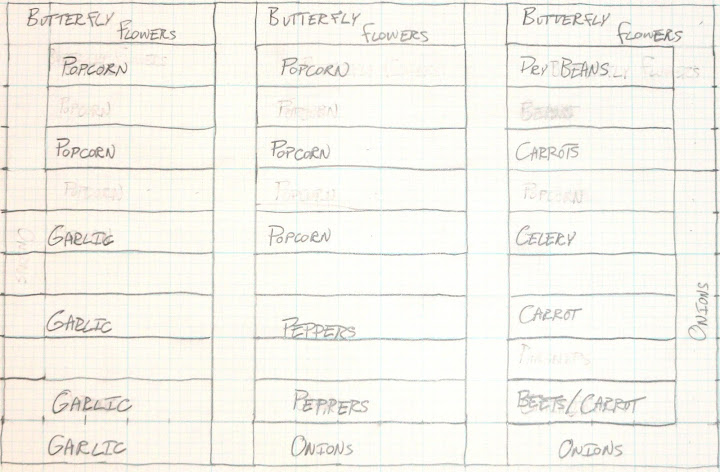 BUTTERFLY
FLOWERS
POPCORN
POPCORN
POPCORN
POPCORN
GARLIC
GARLIC
GARLIC
GARLIC
BUTTERFLY
FLOWERS
POPCORN
POPCORN
POPCORN
POPCORN
POPCORN
PEPPERS
PEPPERS
ONIONS
BUTTERFLY
FLOWERS
DRY BEANS
BEANS
CARROTS
POPCORN
CELERY
CARROT
BEETS/CARROT
ONIONS
ONIONS